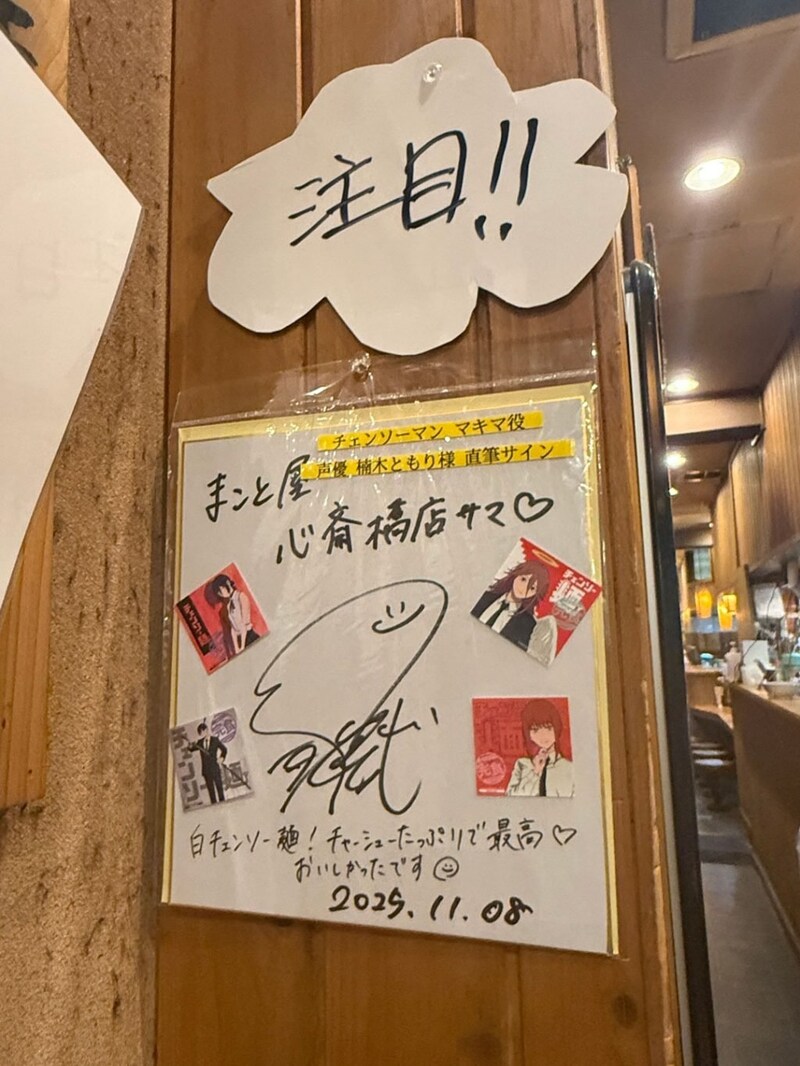 注目!!
チェンソーマン マキマ役
声優 楠木ともり様 直筆サイン
まこと屋
心斎橋店サマ♡
白チェンソー麺！チャーシューたっぷりで最高♡
おいしかったです☺
2025.11.08